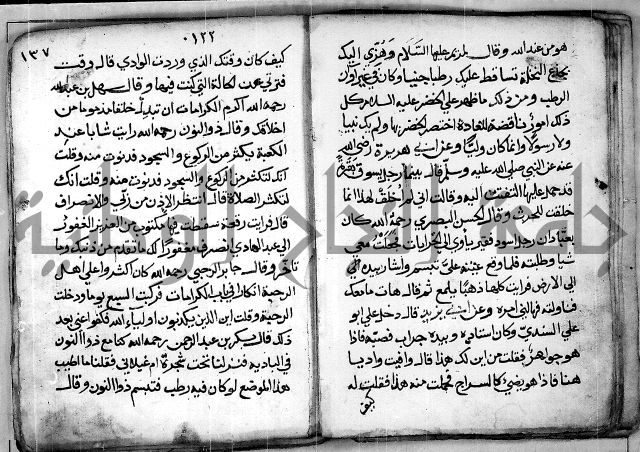 هو من عند الله وقال لمريم عليها السلام وهزي اليك
بجذع النخلة تساقط عليك رطبا جنيا وكان في غير اوان
الرطب ومن ذلك ما ظهر علي الخضر عليه السلام كل
ذلك امور ناقضة للعادة اختص الخضر بها ولم يك نبيا
ولا رسولا وانما كان وليا وعن ابي هريرة رضي الله
عنه عن النبي صلي الله عليه وسلم قال بينما رجل يسوق بقرة
قد حمل عليها التفتت اليه وقالت اني لم اخلق لهذا انما
خلقت للحرث وقال الحسن البصري رحمة الله كان
بعبادان رجل اسود فقير ياوي الي الخرابات فجعلت معي
شيا وطلبته فلما وقع عينه علي تبسم واشار بيده الي
الارض فرايت كلها ذهبا يلمع ثم قال هات ما معك
فناولته فهالني امره وعن ابي يزيد قال دخل علي ابو
علي السندي وكان استاذه وبيده جراب فصبه فاذا
هو جواهر فقلت من اين لك هذا قال وافيت واديا
هنا فاذا هو يضئ كالسراج فحملت منه هذا فقلت له
كيف
٠١٢٢
١٣٧
كيف كان وقتك الذي وردت الوادي قال وقت
فترتي عن الحالة التي كنت فيها وقال سهل بن عبد الله
رحمه الله اكبر الكرامات ان تبدل خلقا مذموما من
اخلاقك وقال ذو النون رحمه الله رايت شابا عند
الكعبة يكثر من الركوع والسجود فدنوت منه وقلت
انك لتكثر من الركوع والسجود فدنوت منه وقلت انك
لتكثر الصلاة قال انتظر الاذن من ربي والانصراف
قال فرايت رقعة سقطت فيها مكتوب من العزيز الغفور
الي عبد الصادق انصرف مغفورا لك ما تقدم من ذنبك وما
تاخر وقال جابر الرحبي رحمه الله كان اكثروا علي اهل
الرحبة انكارا في باب الكرامات فركبت السبع يوما ودخلت
الرحبة وقلت اين الذين يكذبون اولياء الله فكفوا عني بعد
ذلك قال بكر بن عبد الرحمن رحمه الله كنا مع ذو النون
في البادية فنزلنا تحت شجرة ام غيلان فقلنا ما اطيب
هذا الموضع لو كان فيه رطب فتبسم ذو النون وقال
جامعة الملك سعود